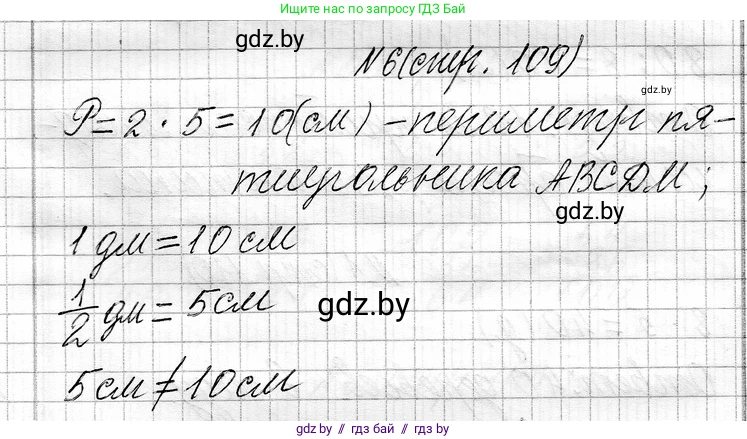 Ищите нас по запросу ГДЗ Бай
gdz.by
№6(стр. 109)
gdz.by
P=2·5=10(см) – периметр пя-
тиугольника ABCDM;
gdz.by
1 дм=10 см
1/2 дм = 5см
gdz.by
5см ≠ 10см
gdz.by // гдз бай // гдз бу